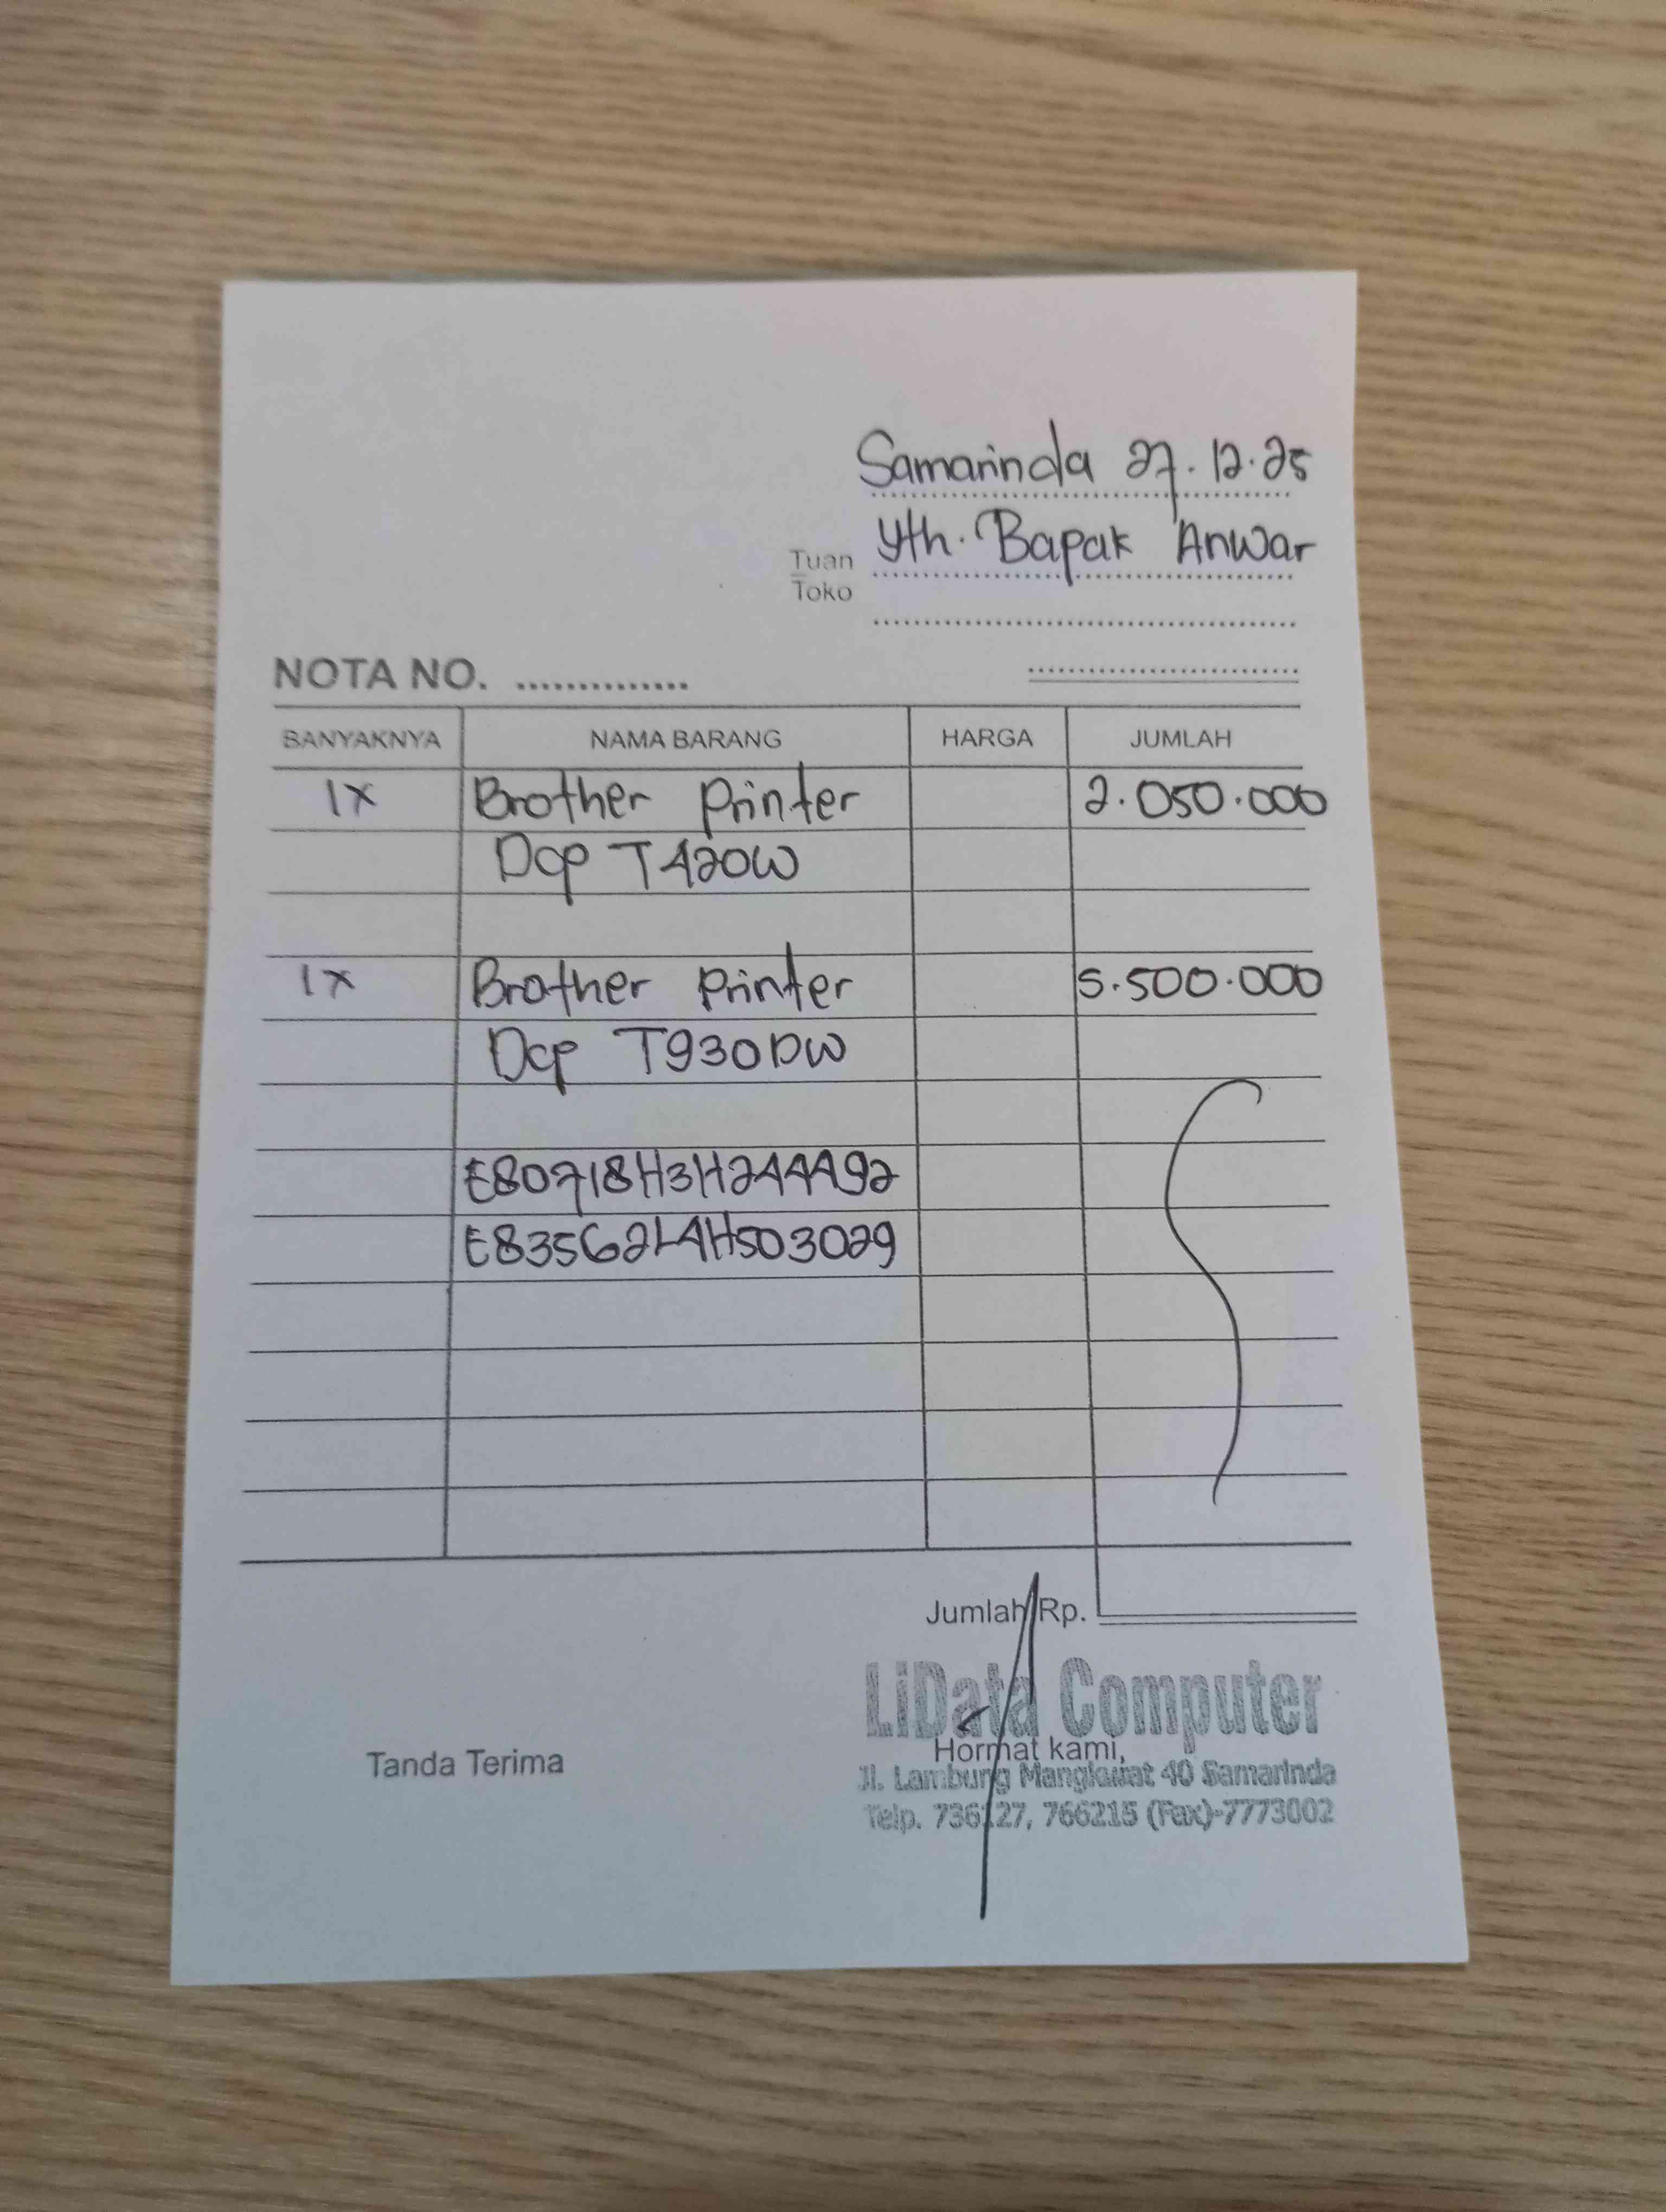 Samarinda 27.12.25
Tuan Yth. Bapak Anwar
Toko
NOTA NO. ..............
BANYAKNYA NAMA BARANG HARGA JUMLAH
1x Brother Printer 2.050.000
Dcp T420W
1x Brother Printer 5.500.000
Dcp T930DW
E80718H3H244492
E83562L4H503029
Jumlah Rp.
LiData Computer
Tanda Terima Hormat kami,
Jl. Lambung Mangkurat 40 Samarinda
Telp. 736227, 766215 (Fax)-7773002